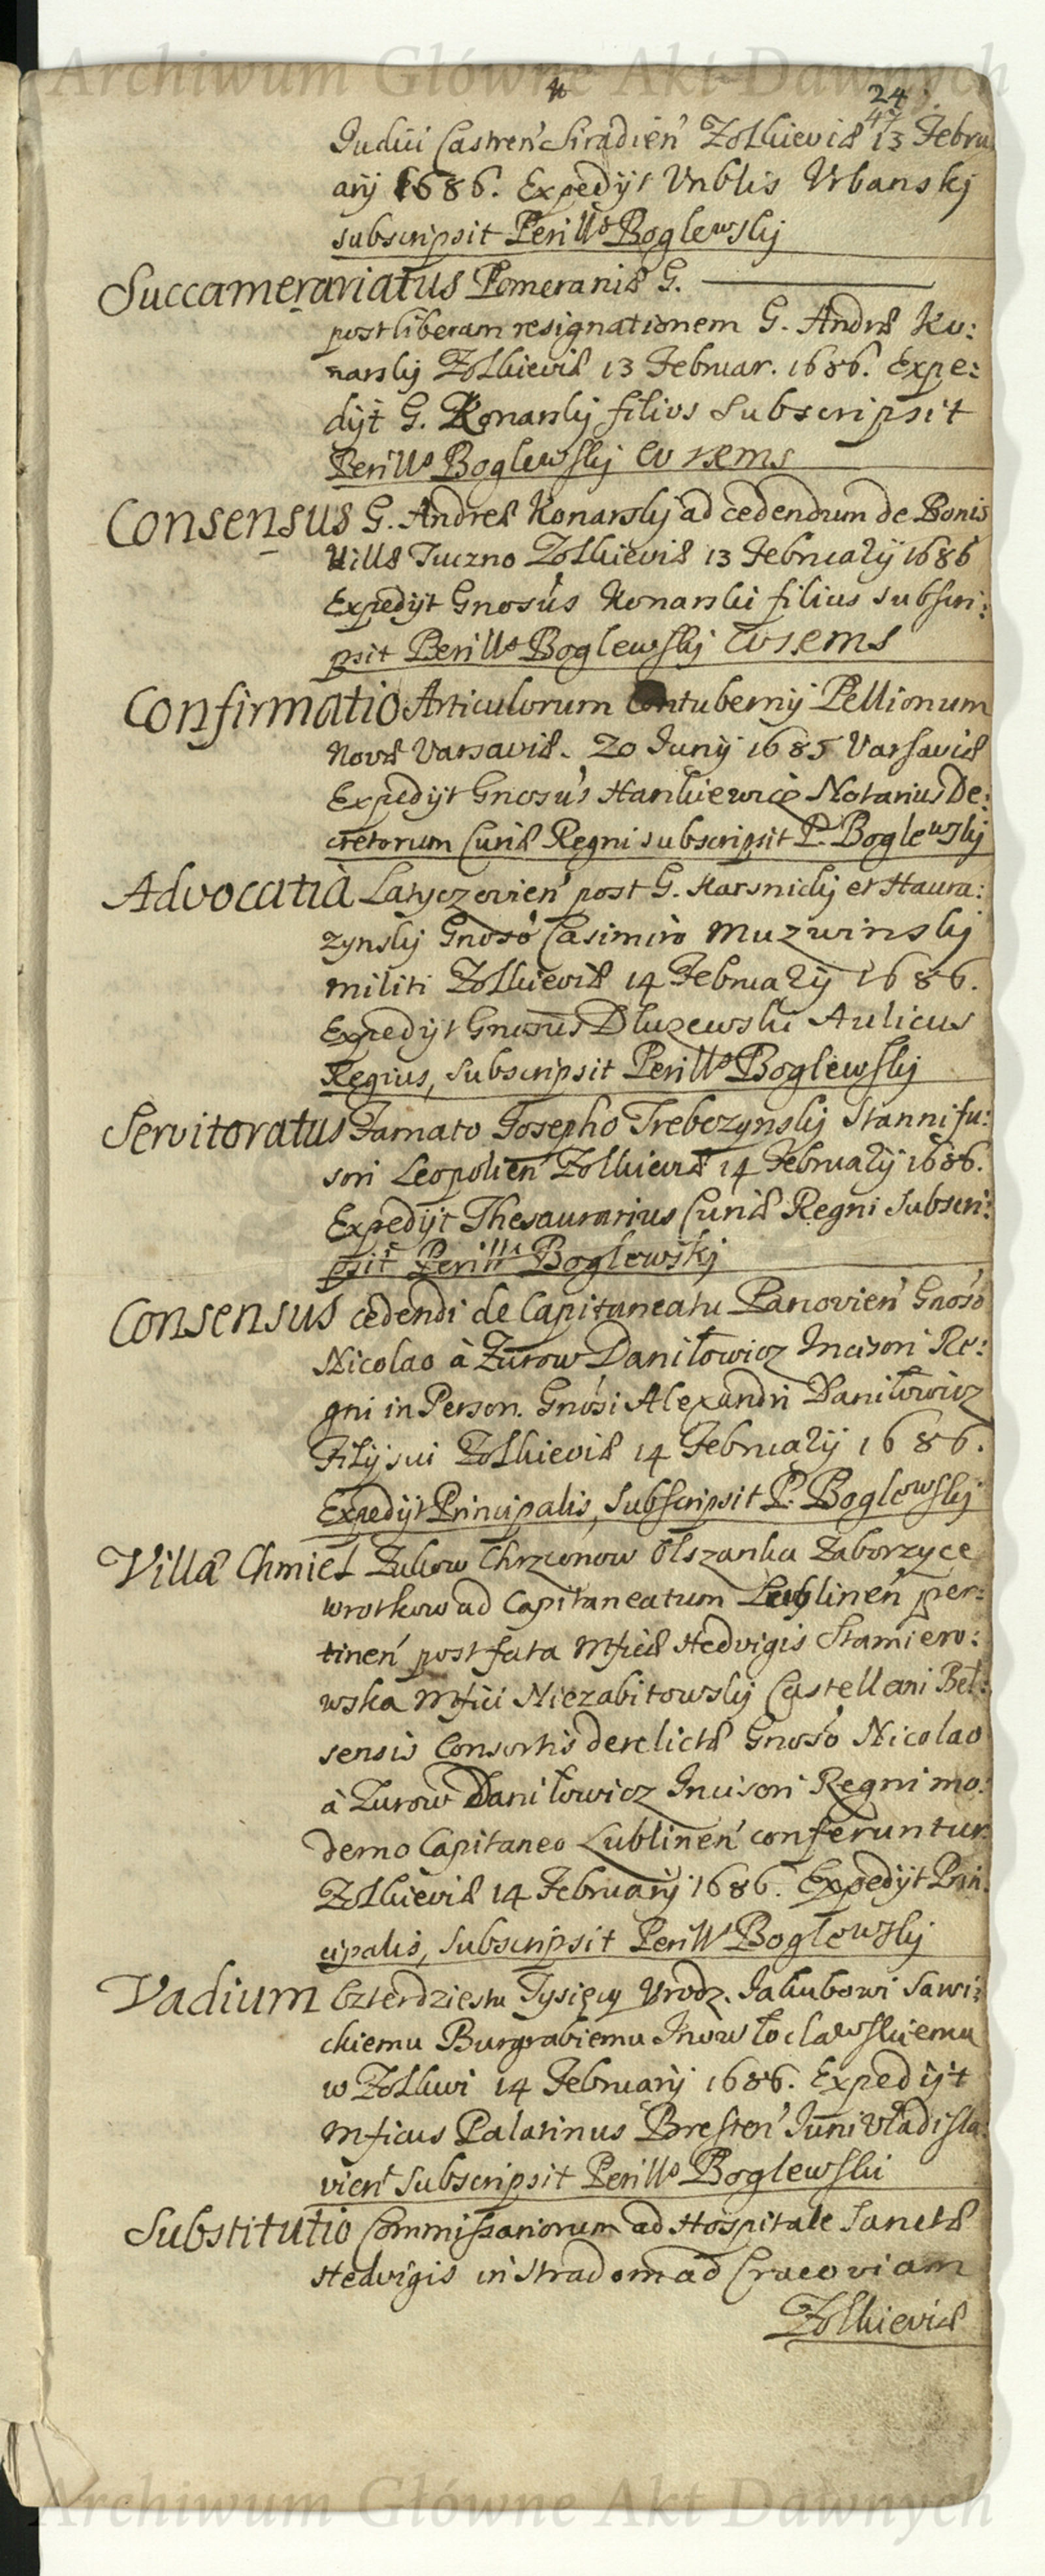 Archiwum Główne Akt Dawnych
24
47
Judici Castren Siradien Zolkieviæ 13 Febru
arij 1686. Expedijt Vnblis Vrbanskj
subscripsit Perills Boglewskij
Succamerariatus Pomeraniæ G.
post liberam resignationem G. Andreæ Ko:
narskij Zolkieviæ 13 Februar. 1686. Expe:
dijt G. Konarskij filius Subscripsit
Perills Boglewskij
Consensus G. Andreæ Konarskij ad cedendum de Bonis
Villæ Tuczno Zolkieviæ 13 Februarij 1686
Expedijt Gnosus Konarski filius subscri:
psit Perills Boglewskij
Confirmatio Articulorum Contubernij Pellionum
Novæ Varsaviæ. 20 Junij 1685 Varsaviæ
Expedijt Gnosus Hankiewicz Notarius De:
cretorum Curiæ Regni subscripsit P. Boglewskij
Advocatia Latyczovien post G. Karsnickij et Haura:
zynskij Gnoso Casimiro Muzwinskij
militi Zolkieviæ 14 Februarij 1686.
Expedijt Gnosus Dluzewski Aulicus
Regius, Subscripsit Perills Boglewskij
Servitoratus Famato Josepho Trebczynskij Stannifu:
sori Leopolien Zolkieviæ 14 Februarij 1686.
Expedijt Thesaurarius Curiæ Regni Subscri:
psit Perills Boglewskj
Consensus cedendi de Capitaneatu Parovien Gnoso
Nicolao à Zurow Daniłowicz Incisori Re:
gni in Person. Gnosi Alexandri Daniłowicz
Filij sui Zolkieviæ 14 Februarij 1686.
Expedijt Principalis, Subscripsit P. Boglewskij
Villæ Chmiel Zukow Chrzonow Olszanka Zaborzyce
wrotkow ad Capitaneatum Lublinen per:
tinen post fata Mficæ Hedvigis Stamiero:
wska Mfici Niezabitowskij Castellani Bel:
sensis Consortis derelictæ Gnoso Nicolao
à Zurow Daniłowicz Incisori Regni mo:
derno Capitaneo Lublinen conferuntur
Zolkieviæ 14 Februarij 1686. Expedijt Prin:
cipalis, Subscripsit Perills Boglewskij
Vadium Czterdziestu Tysięcy Vrodz. Jakubowi Sawi:
ckiemu Burgrabiemu Inowłocławskiemu
w Zolkwi 14 Februarij 1686. Expedijt
Mficus Palatinus Bresten Juni Vladisla:
vien Subscripsit Perills Boglewski
Substitutio Commissariorum ad Hospitale Sanctæ
Hedvigis in Stradom ad Cracoviam
Zolkieviæ
Archiwum Główne Akt Dawnych